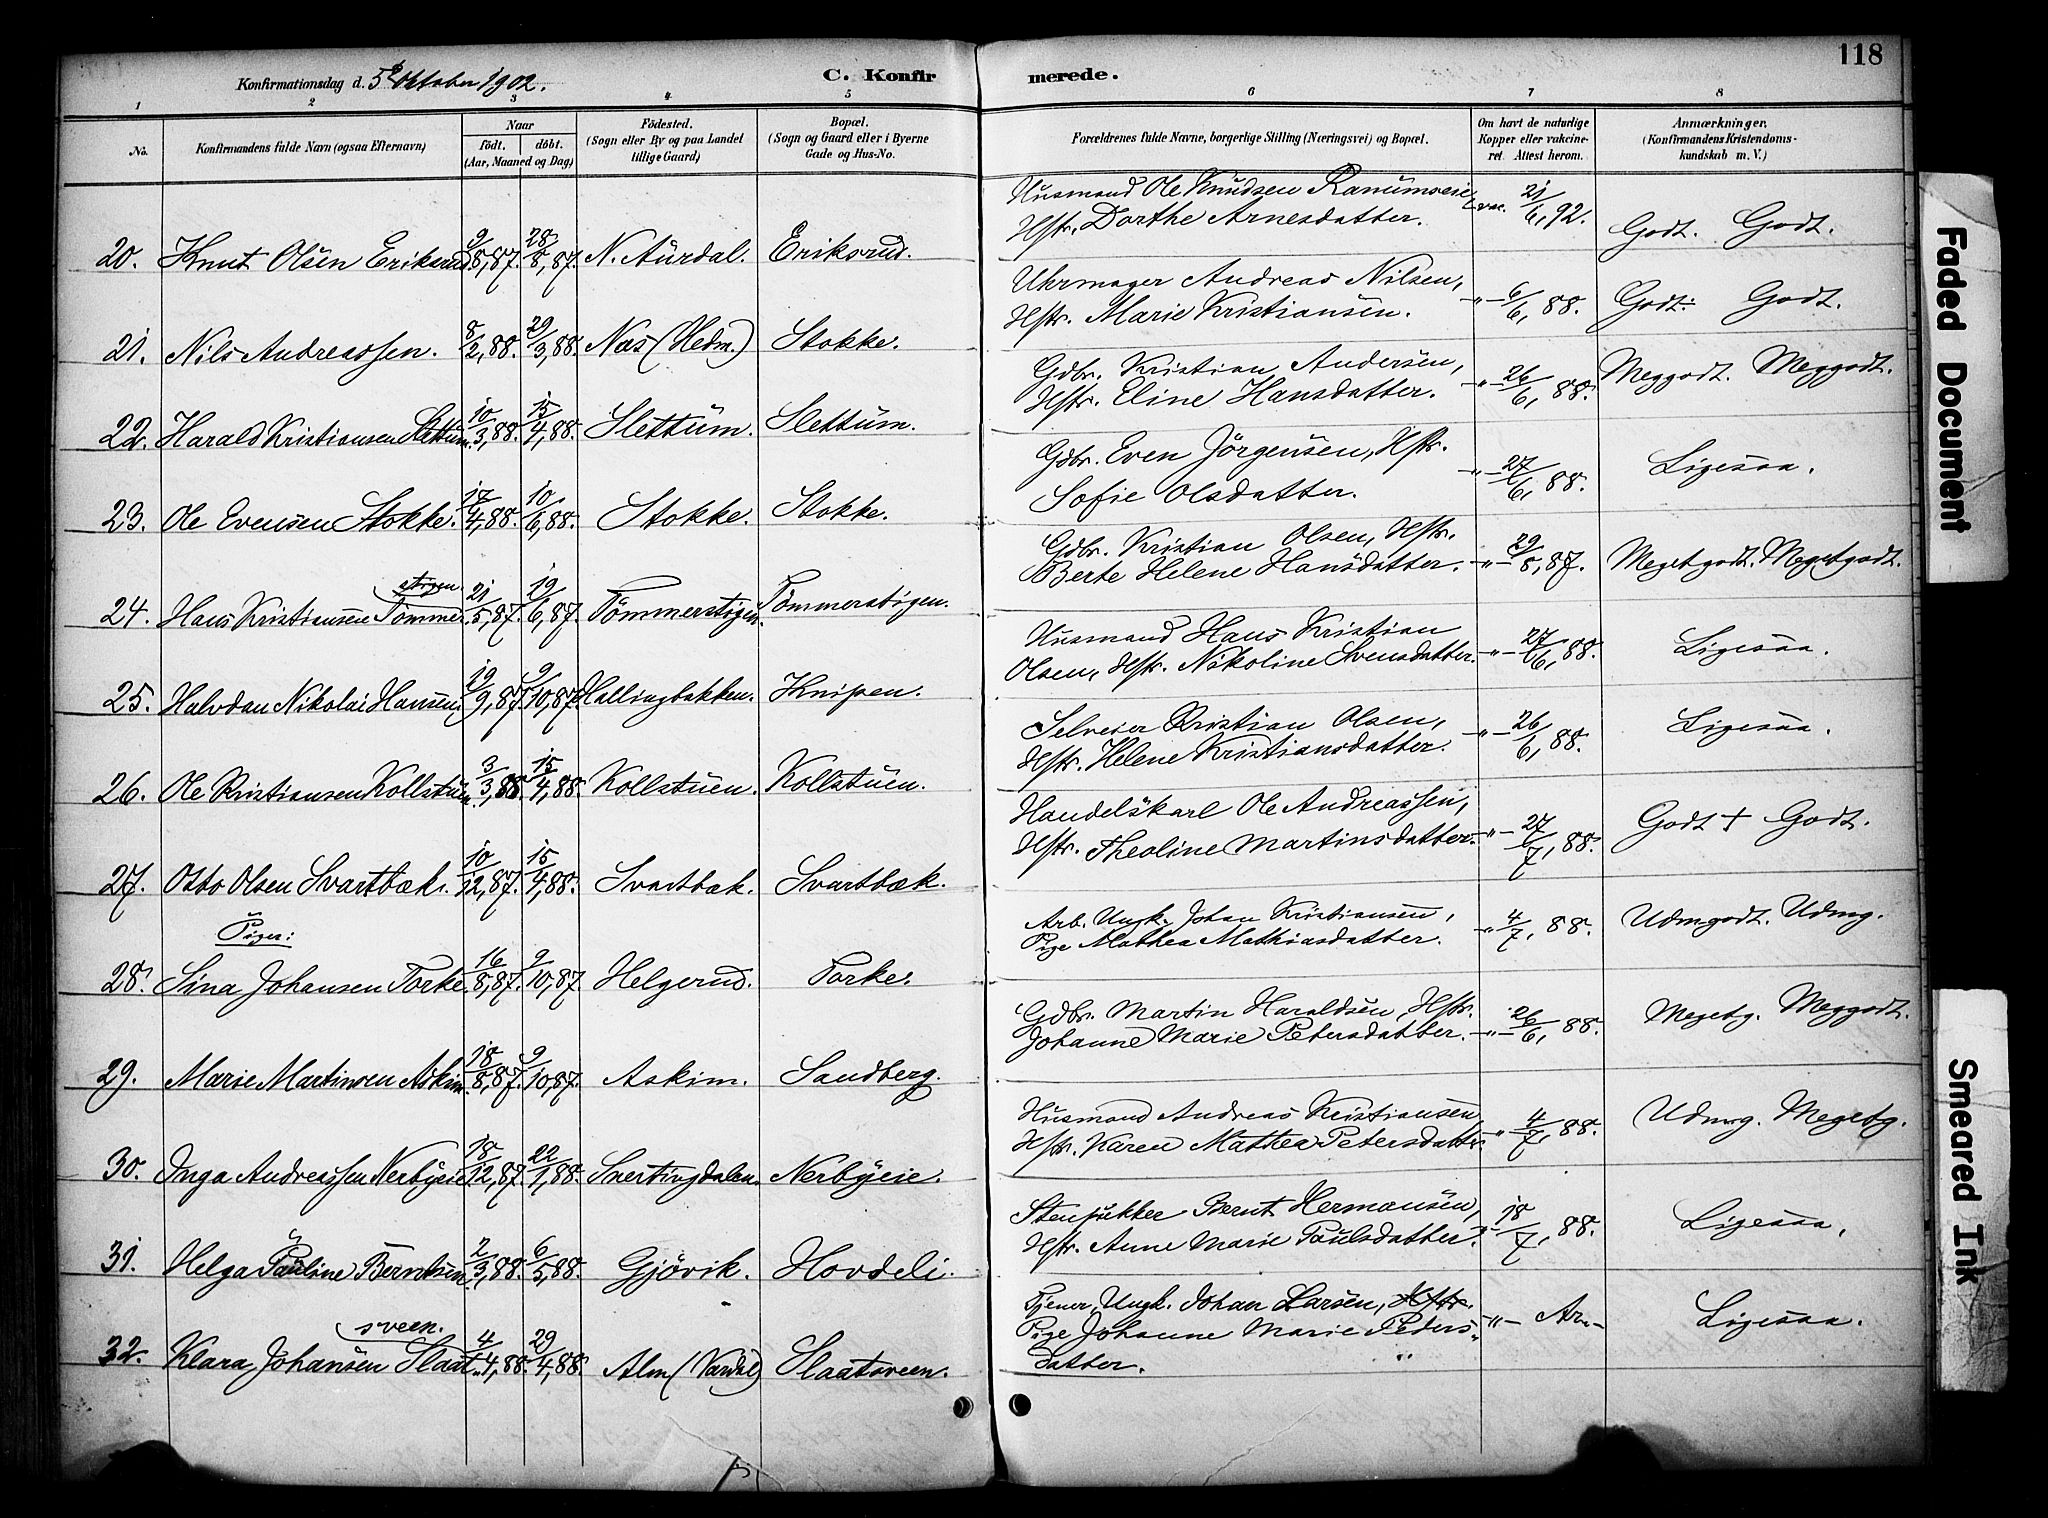 118
Konfirmationsdag d. 5te Oktober 1902.
C. Konfirmerede.
1 2 3 4 5 6 7 8
No.
Konfirmandens fulde Navn (ogsaa Efternavn)
Naar
født. døbt.
(Aar, Maaned og Dag)
Fødested.
(Sogn eller By og paa Landet
tillige Gaard)
Bopæl.
(Sogn og Gaard eller i Byerne
Gade og Hus-No.
Forældrenes fulde Navne, borgerlige Stilling (Næringsvei) og Bopæl.
Om havt de naturlige
Kopper eller vakcine-
ret. Attest herom.
Anmærkninger.
(Konfirmandens Kristendoms-
kundskab m. V.)
Husmand Ole Knudsen Ranumseie,
Hstr. Dorthe Arnesdatter. vac. 21/6, 92. Godt. Godt.
20. Knut Olsen Eriksrud 9/8, 87. 28/8, 87. N. Aurdal. Eriksrud.
Uhrmager Andreas Nilsen,
Hstr. Marie Kristiansen. -"- 6/6, 88. Godt. Godt.
21. Nils Andreassen. 8/2, 88. 29/3, 88. Næs (Hedm.) Stokke.
Gdbr. Kristian Andersen,
Hstr. Eline Hansdatter. -"- 26/6, 88. Meggodt. Meggodt.
22. Harald Kristiansen Slettum. 10/3, 88. 15/4, 88. Slettum. Slettum.
Gdbr. Even Jörgensen, Hstr.
Sofie Olsdatter. -"- 27/6, 88. Ligesaa.
23. Ole Evensen Stokke. 17/4, 88. 10/6, 88. Stokke. Stokke.
Gdbr. Kristian Olsen, Hstr.
Berte Helene Hansdatter. -"- 29/8, 87. Megetgodt. Megetgodt.
stigen
24. Hans Kristiansen Tömmer 21/5, 87. 19/6, 87. Tömmerstigen. Tömmerstigen.
Husmand Hans Kristian
Olsen, Hstr. Nikoline Svensdatter. -"- 27/6, 88. Ligesaa.
25. Halvdan Nikolai Hansen. 19/9, 87. 9/10, 87. Hallingbakken. Knipen.
Selveier Kristian Olsen,
Hstr. Helene Kristiansdatter. -"- 26/6, 88. Ligesaa.
26. Ole Kristiansen Kollstuen 3/3, 88. 15/4, 88. Kollstuen. Kollstuen.
Handelskarl Ole Andreassen,
Hstr. Theoline Martinsdatter. -"- 27/7, 88. Godt + Godt.
27. Otto Olsen Svartbæk. 10/12, 87. 15/4, 88. Svartbæk. Svartbæk.
Piger:
Arb. Ungk. Johan Kristiansen,
Pige Mathea Mathiasdatter. -"- 4/7, 88. Udmgodt. Udmg.
28. Sina Johansen Torke. 16/8, 87. 9/10, 87. Helgerud. Torke.
Gdbr. Martin Haraldsen, Hstr.
Johanne Marie Petersdatter. -"- 26/6, 88. Megetg. Meggodt.
29. Marie Martinsen Askim. 18/8, 87. 9/10, 87. Askim. Sandberg.
Husmand Andreas Kristiansen,
Hstr. Karen Mathea Petersdatter. -"- 4/7, 88. Udmg. Megetg.
30. Inga Andreassen Nerbyeie 18/12, 87. 22/1, 88. Snertingdalen. Nerbyeie.
Stenpikker Bernt Hermansen,
Hstr. Anne Marie Paulsdatter. -"- 18/7, 88. Ligesaa,
31. Helga Pauline Berntsen. 2/3, 88. 6/5, 88. Gjövik. Hovdeli.
Tjener, Ungk. Johan Larsen, Hstr.
Pige Johanne Marie Peders-
datter. -"- Ar- Ligesaa.
sveen.
32. Klara Johansen Slaat 4/4, 88. 29/4, 88. Alm (Vardal) Slaatsveen.
Faded Document
Smeared Ink